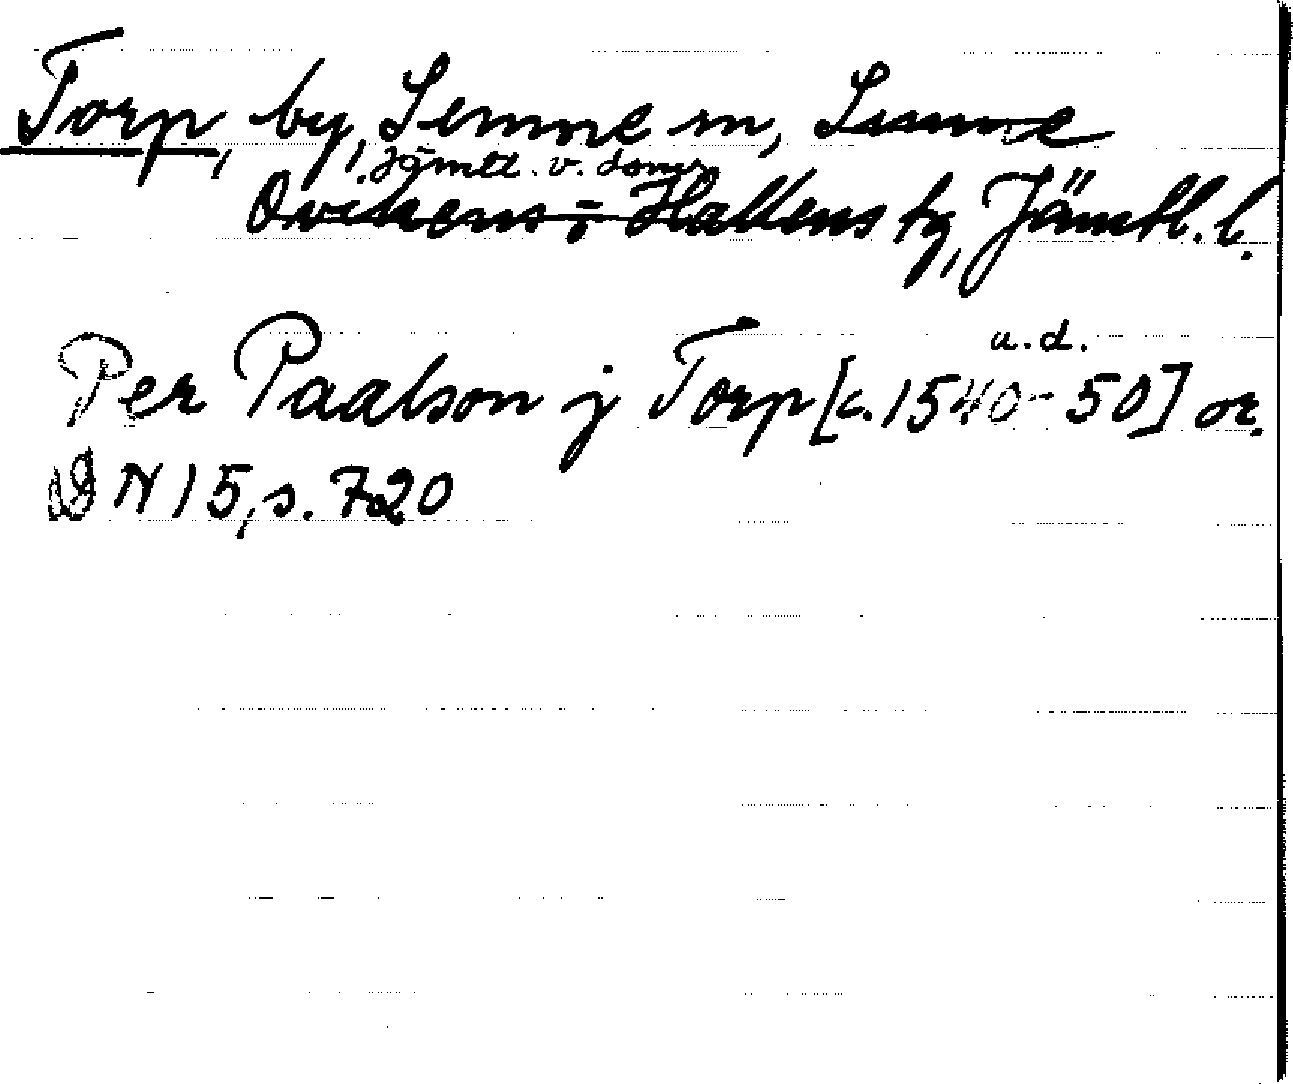 Torp, by, Semme sn, Sunne
Jämtl. v. doms.
Ovikens-Hallens tg, Jämtl. l.
u.d.
Per Paalson j Torp [c. 1540-50] or.
DN 15, s. 720